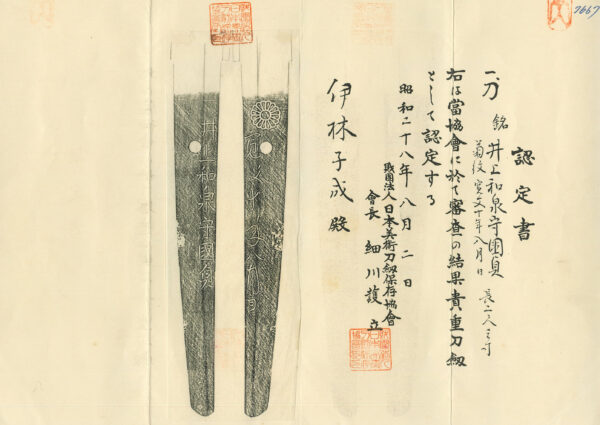 7667
認定書
一、刀 銘 井上和泉守國貞 長二尺三寸
菊紋 寛文十年八月日
右は當協會に於て審査の結果貴重刀劔
として認定する
昭和二十八年八月二日
財團法人日本美術刀劔保存協會
會長 細川護立
伊林子成殿
井上和泉守國貞